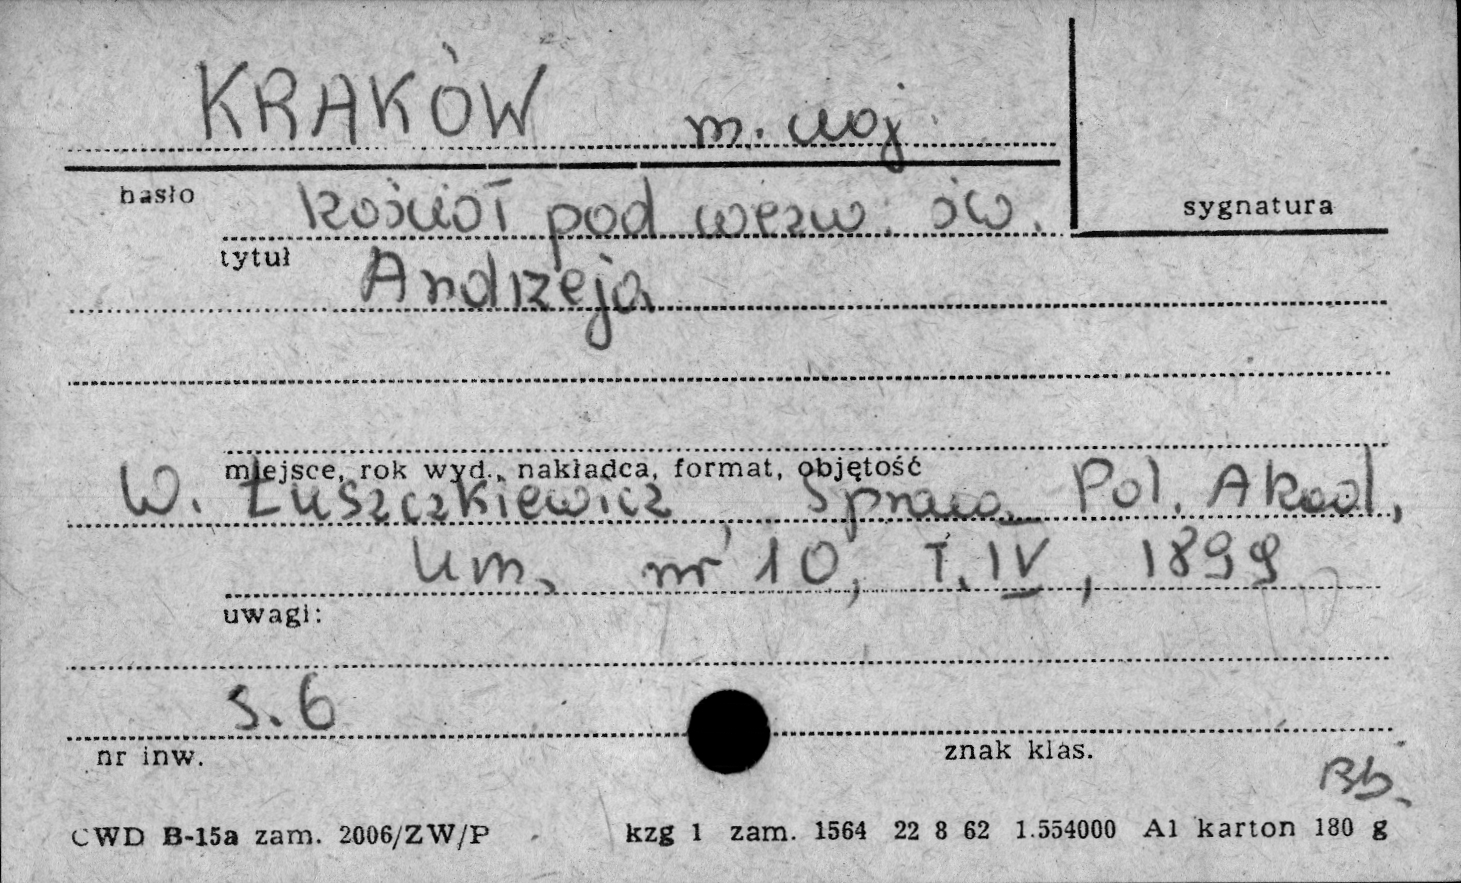 KRAKÓW m. woj.
hasło
sygnatura
kościół pod wezw. św.
tytuł
Andrzeja
miejsce, rok wyd., nakładca, format, objętość
W. Łuszczkiewicz Spraw. Pol. Akad,
Um, nr 10, T. IV, 1899
uwagi:
s. 6
nr inw.
znak klas.
Bb.
CWD B-15a zam. 2006/ZW/P kzg 1 zam. 1564 22 8 62 1.554000 A1 karton 180 g